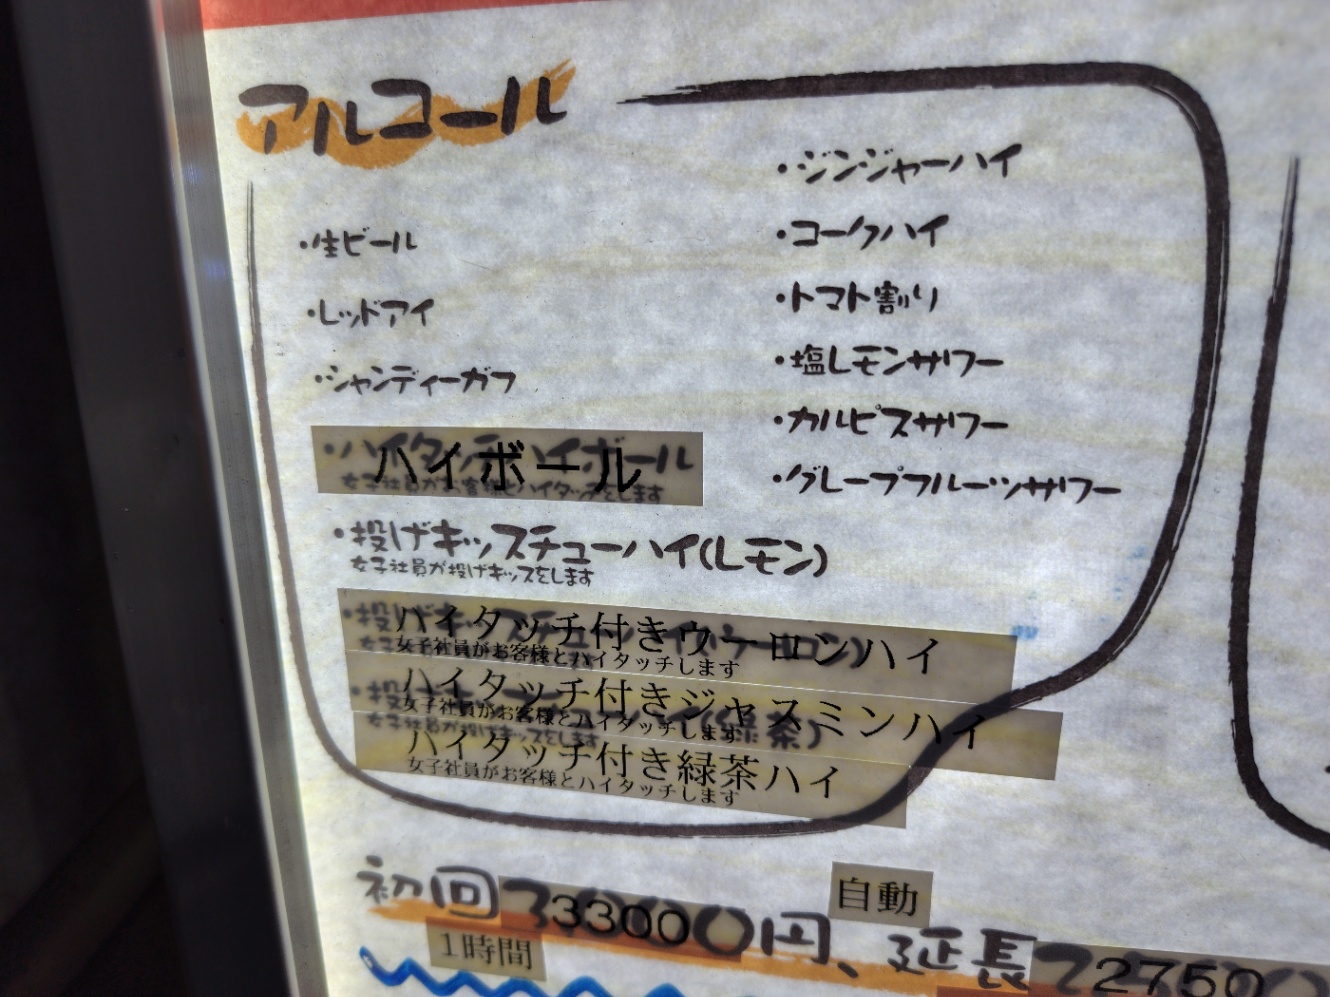 アルコール
・生ビール
・レッドアイ
・シャンディーガフ
・ハイタッチハイボール
ハイボール
女子社員がお客様とハイタッチをします
・投げキッスチューハイ(レモン)
女子社員が投げキッスをします
ハイタッチ付きウーロンハイ
女子社員がお客様とハイタッチします
ハイタッチ付きジャスミンハイ
女子社員がお客様とハイタッチします
ハイタッチ付き緑茶ハイ
女子社員がお客様とハイタッチします
・ジンジャーハイ
・コークハイ
・トマト割り
・塩レモンサワー
・カルピスサワー
・グレープフルーツサワー
自動
初回3300円、延長2750
1時間